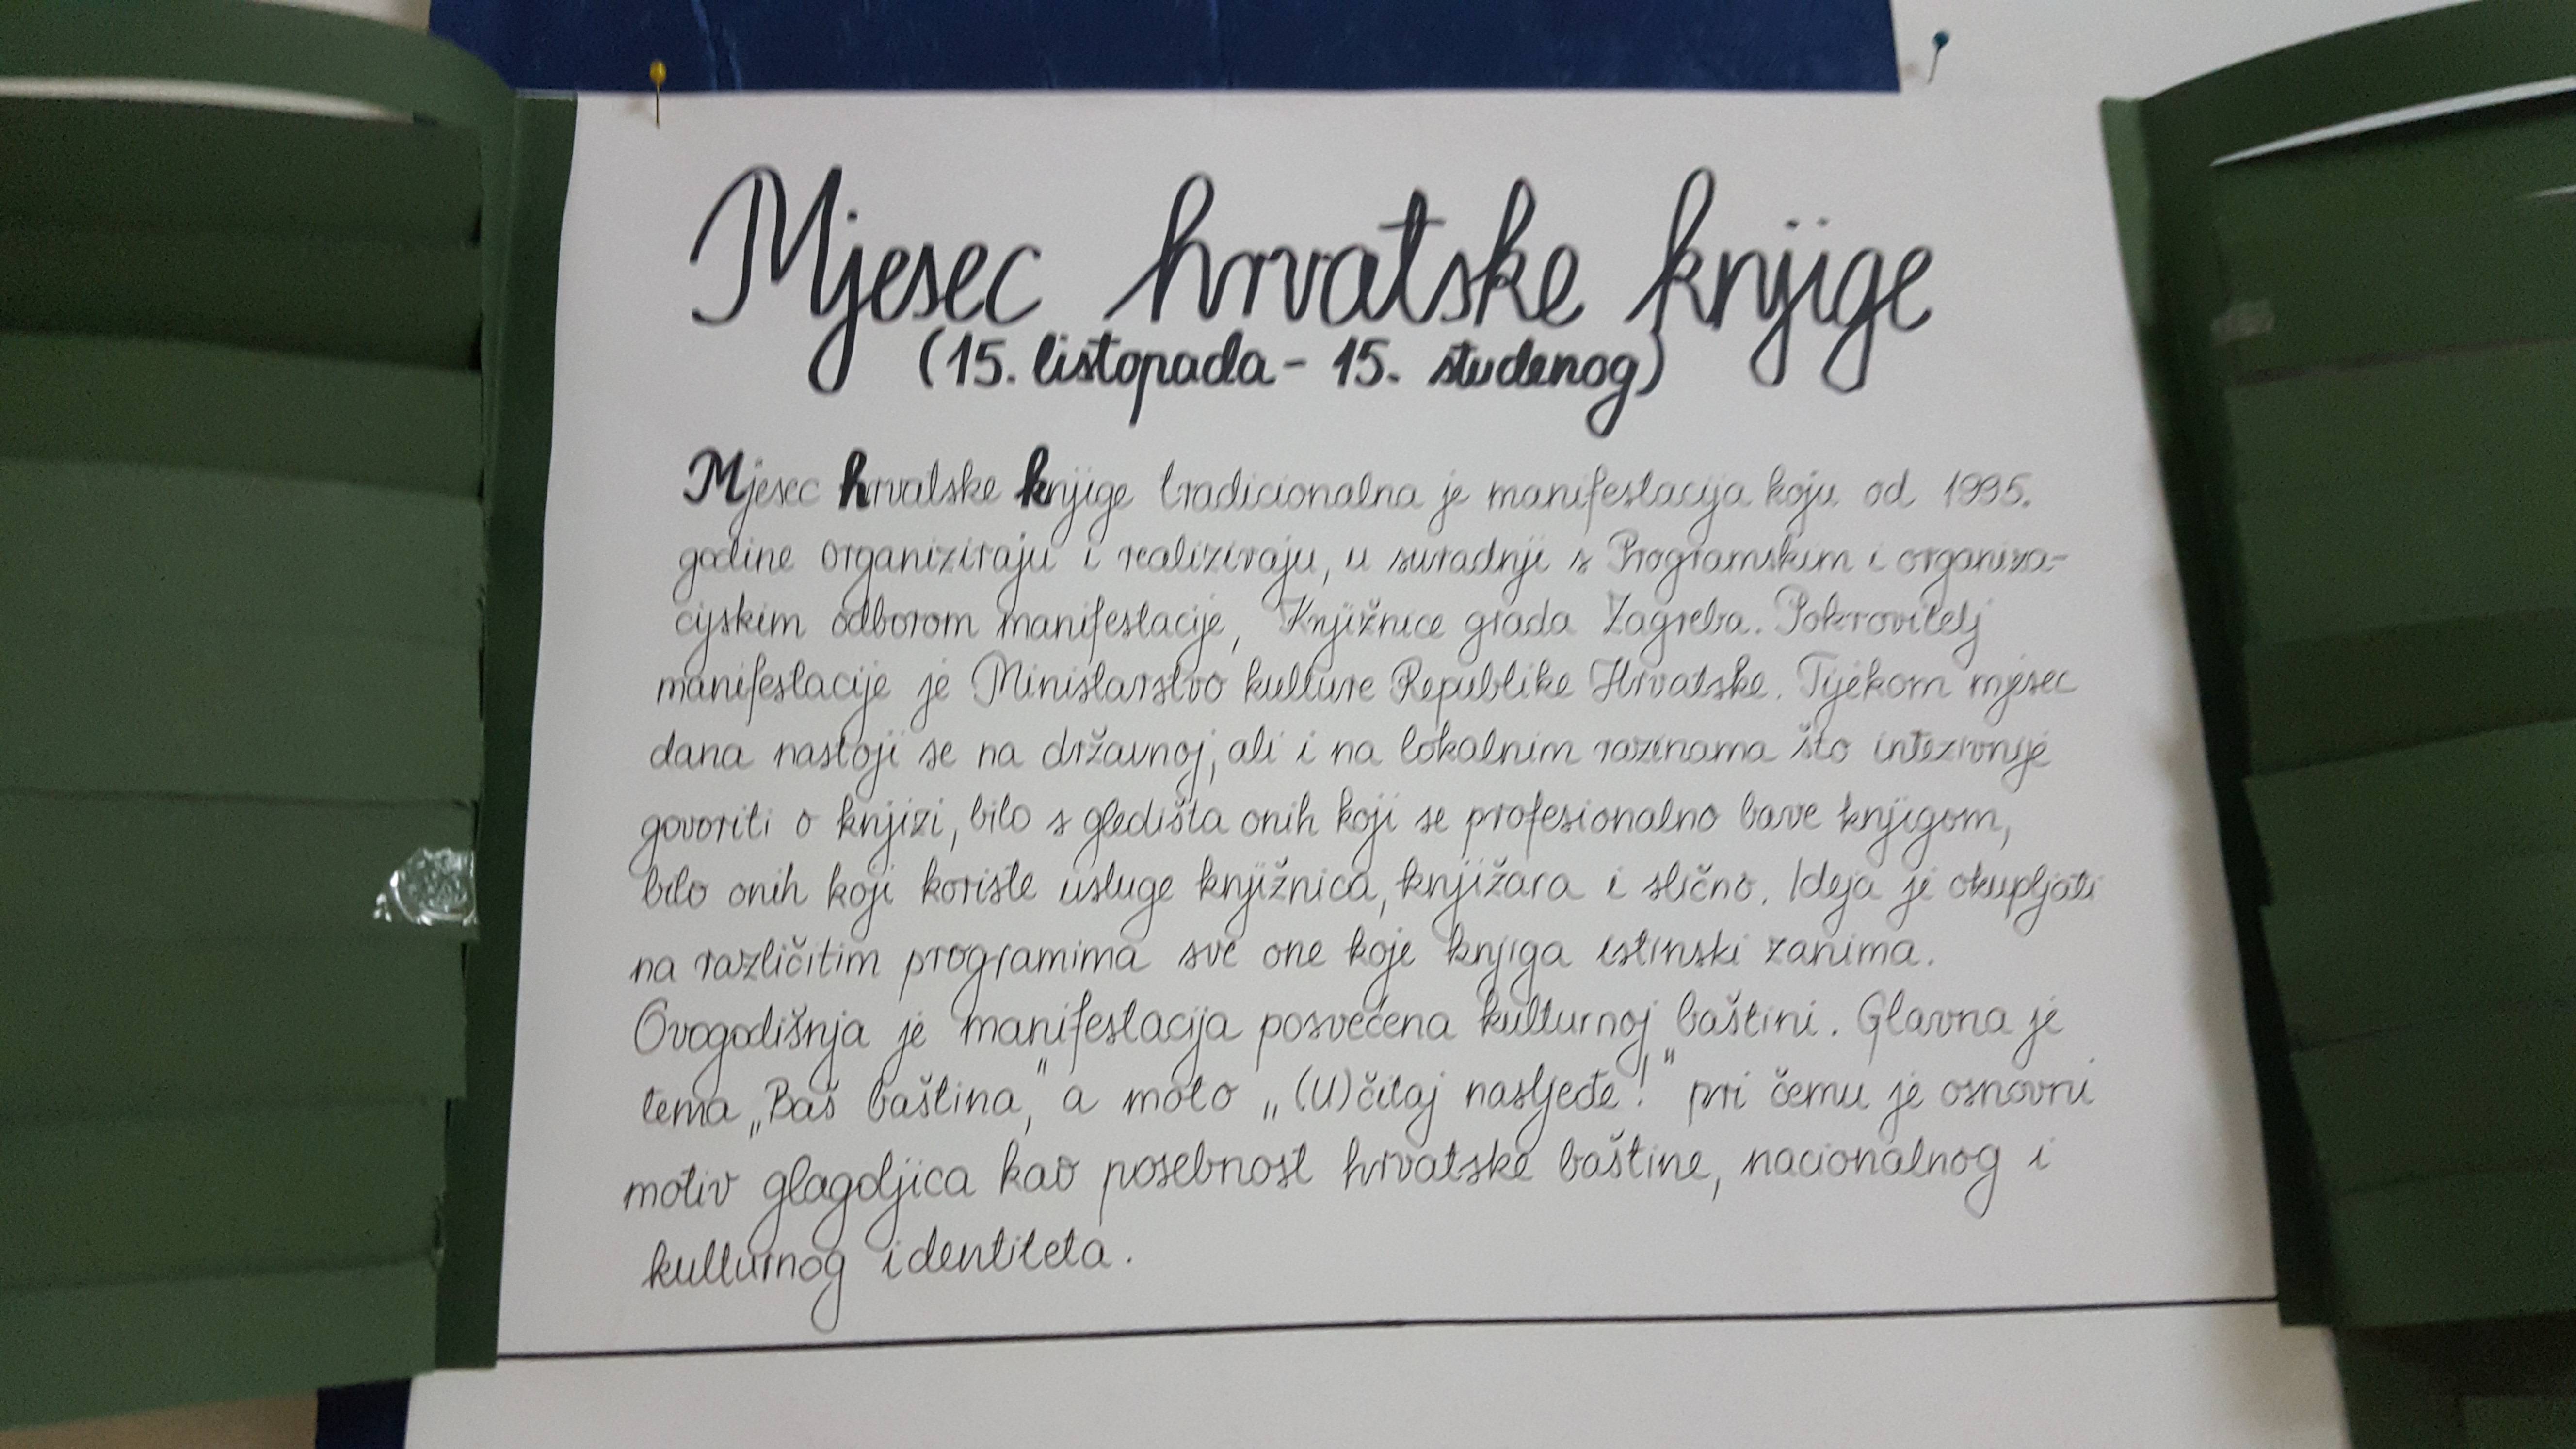 Mjesec hrvatske knjige
(15. listopada - 15. studenog)
Mjesec hrvatske knjige tradicionalna je manifestacija koju od 1995.
godine organiziraju i realiziraju, u suradnji s Programskim i organiza-
cijskim odborom manifestacije, Knjižnice grada Zagreba. Pokrovitelj
manifestacije je Ministarstvo kulture Republike Hrvatske. Tijekom mjesec
dana nastoji se na državnoj, ali i na lokalnim razinama što intezivnije
govoriti o knjizi, bilo s gledišta onih koji se profesionalno bave knjigom,
bilo onih koji koriste usluge knjižnica, knjižara i slično. Ideja je okupljati
na različitim programima sve one koje knjiga istinski zanima.
Ovogodišnja je manifestacija posvećena kulturnoj baštini. Glavna je
tema „Baš baština," a moto „(U)čitaj nasljeđe!" pri čemu je osnovni
motiv glagoljica kao posebnost hrvatske baštine, nacionalnog i
kulturnog identiteta.